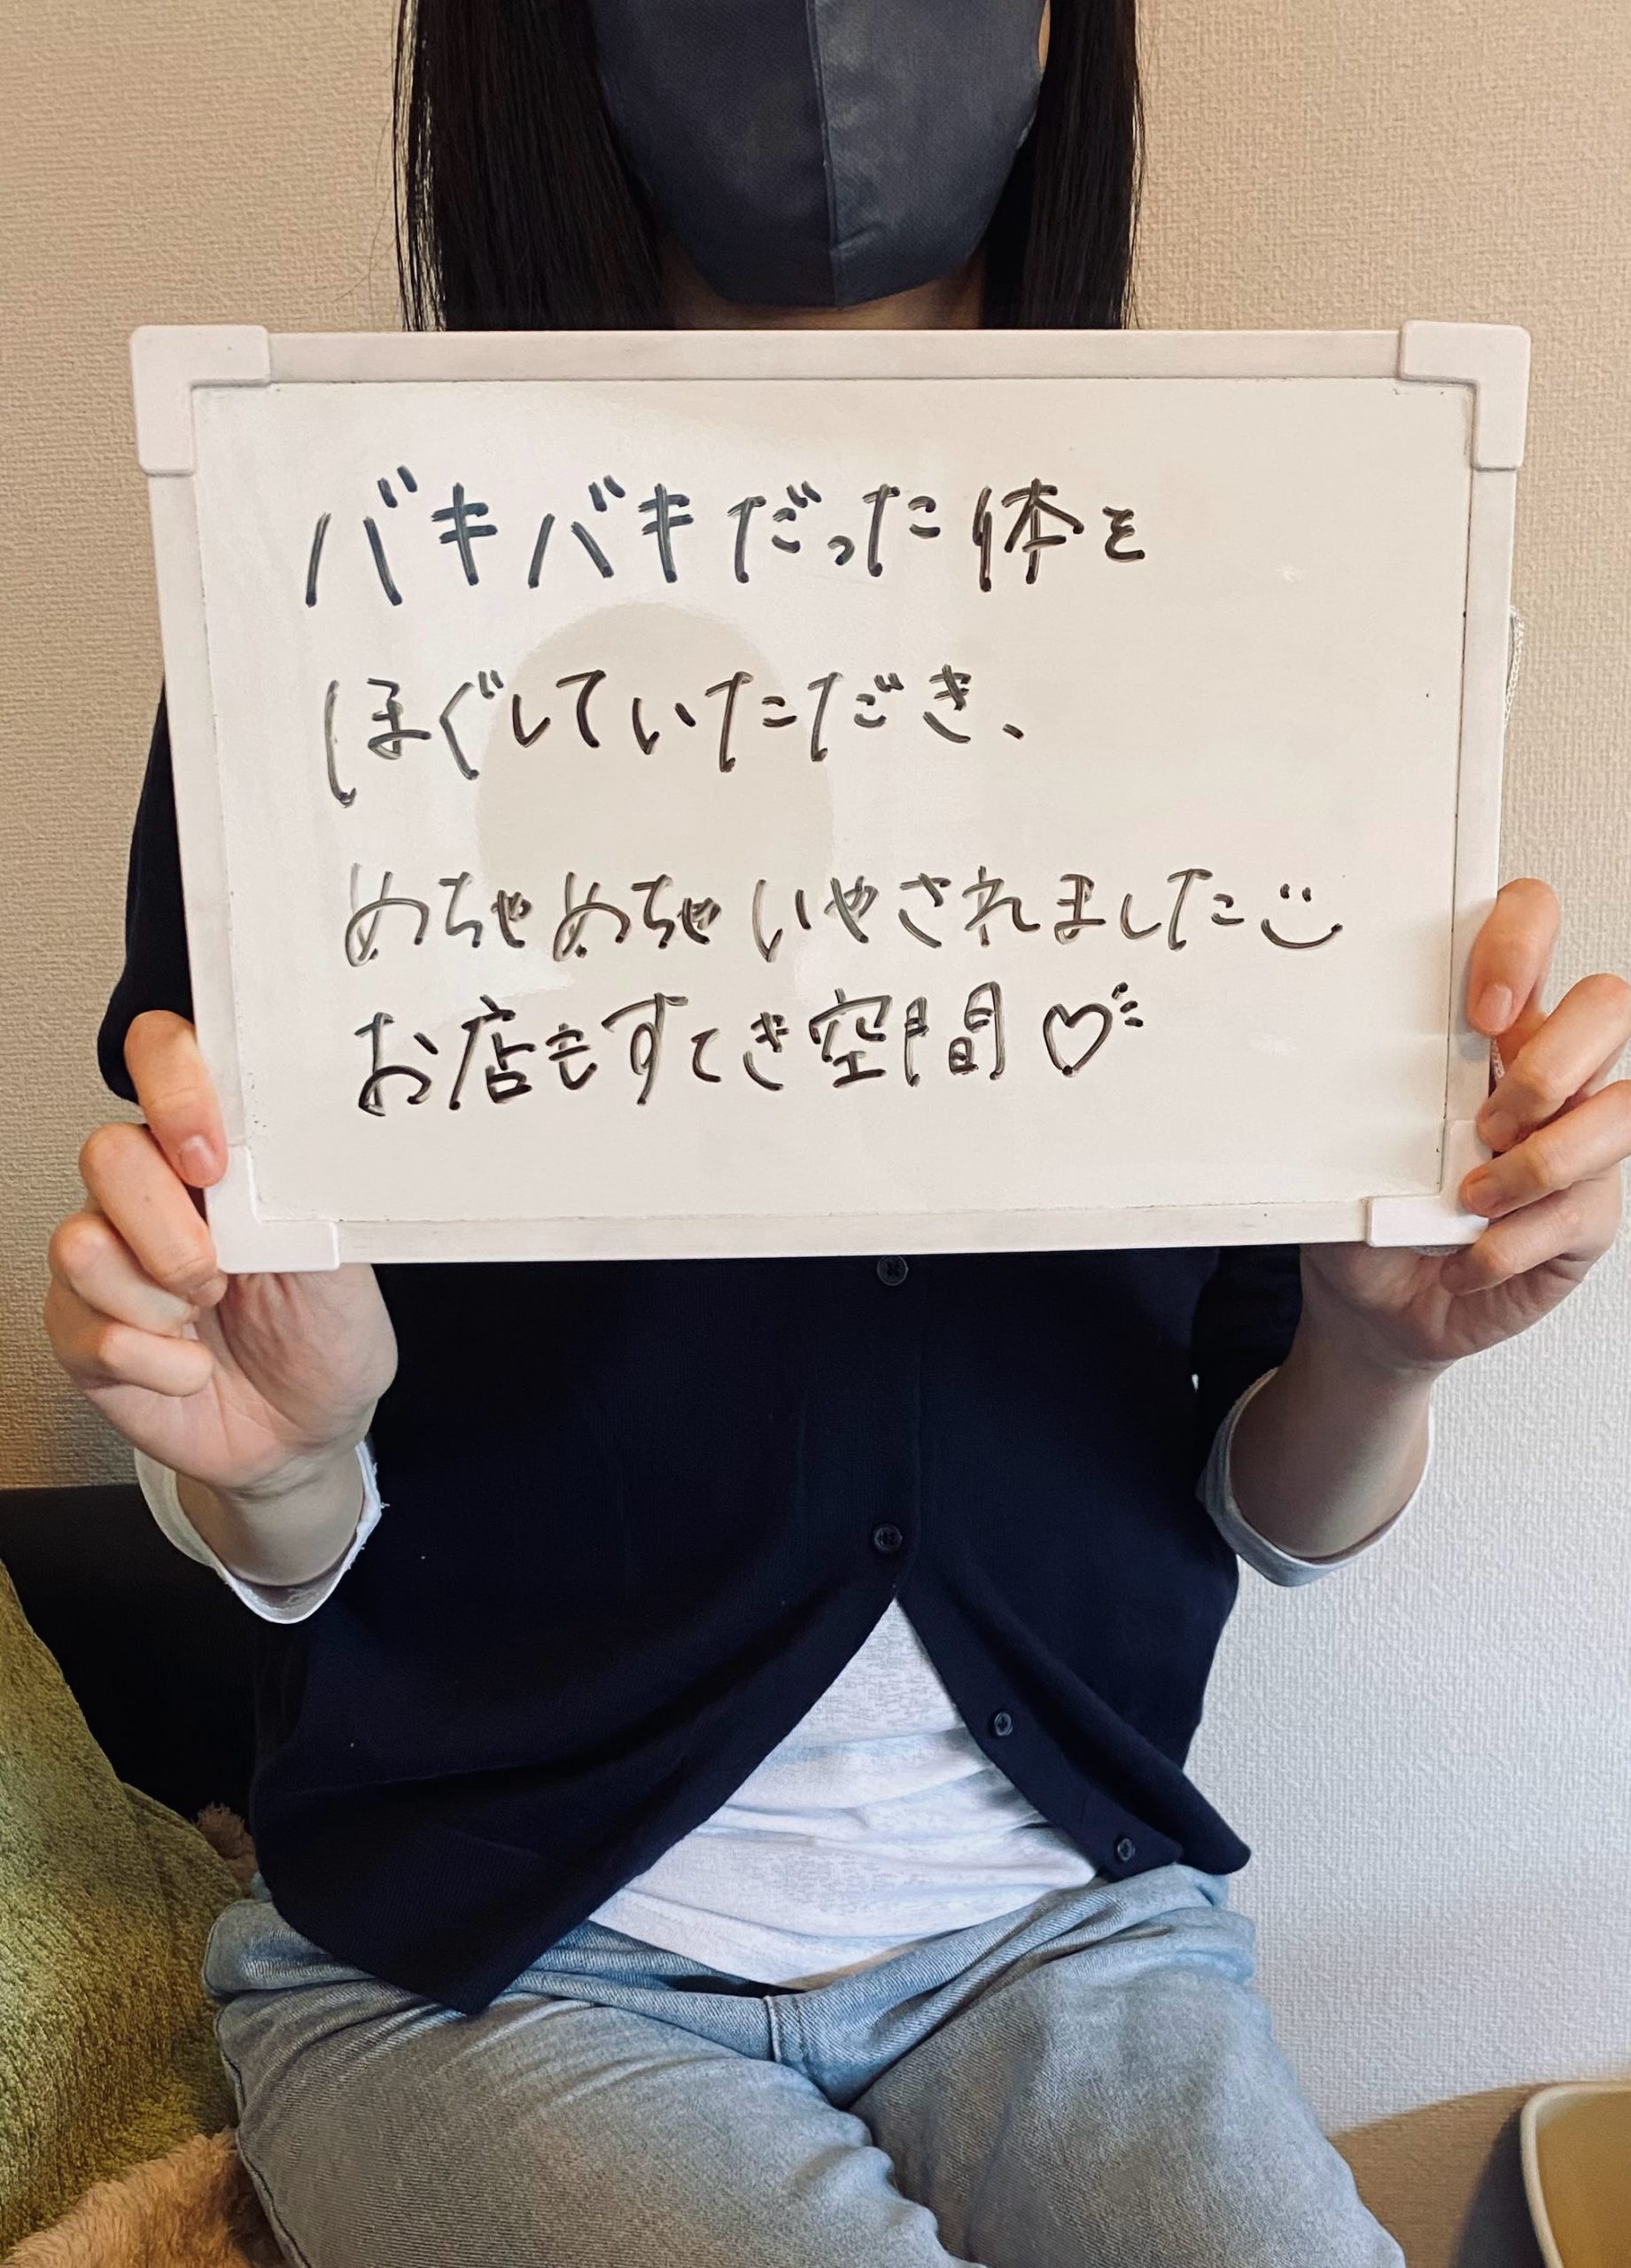 バキバキだった体を
ほぐしていただき、
めちゃめちゃいやされました
お店もすてき空間♡